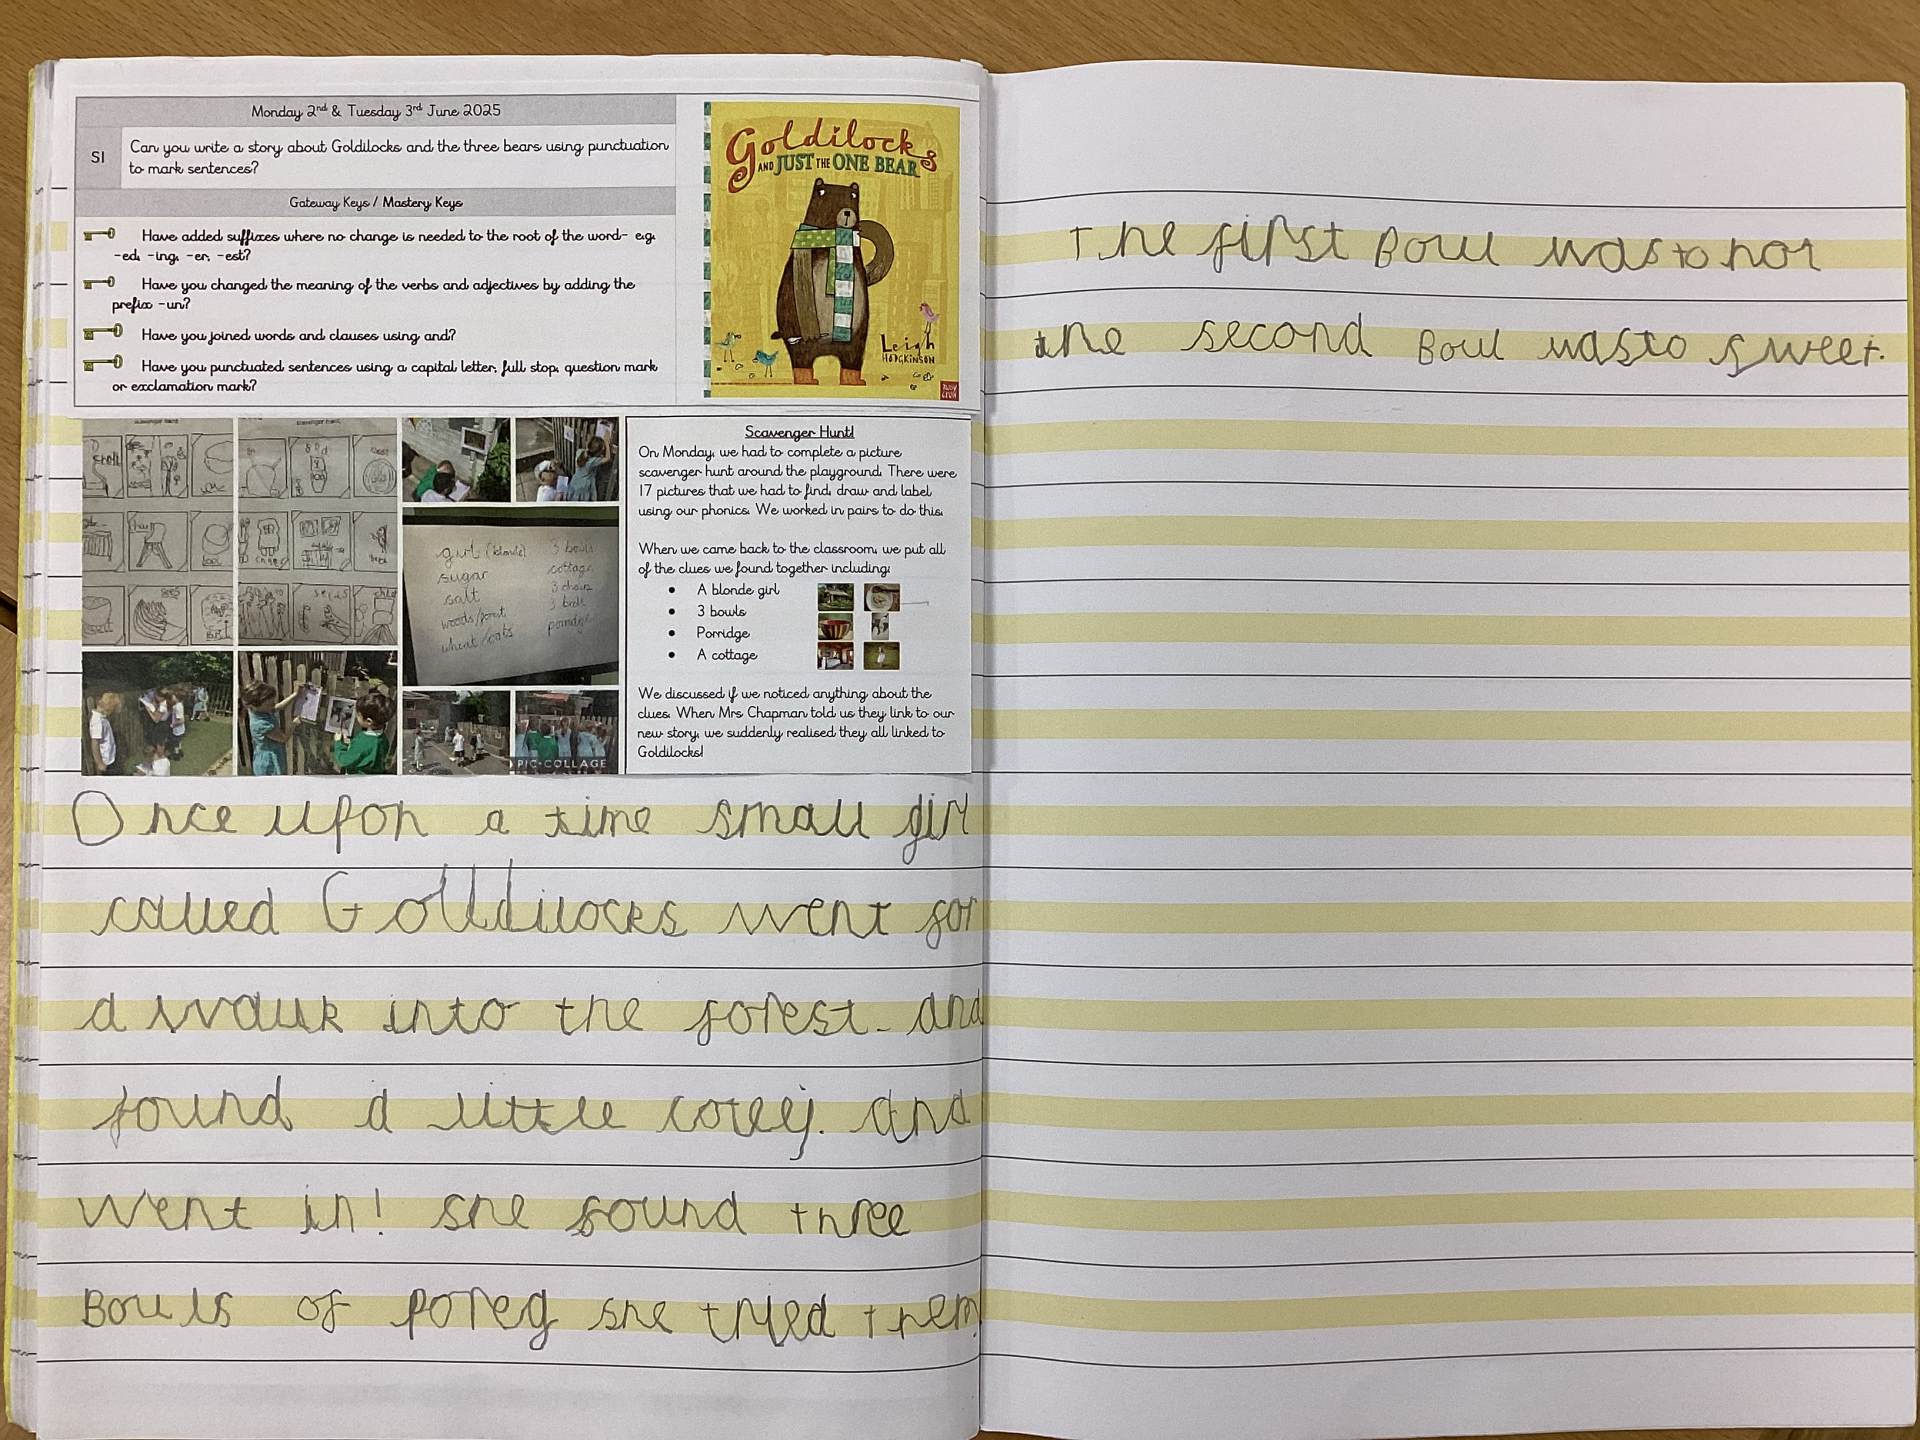 Monday 2nd & Tuesday 3rd June 2025
SI
Can you write a story about Goldilocks and the three bears using punctuation
to mark sentences?
Gateway Keys / Mastery Keys
Have added suffixes where no change is needed to the root of the word- e.g.
-ed, -ing, -er, -est?
Have you changed the meaning of the verbs and adjectives by adding the
prefix -un?
Have you joined words and clauses using and?
Have you punctuated sentences using a capital letter, full stop, question mark
or exclamation mark?
Goldilocks
AND JUST THE ONE BEAR
Leigh
HODGKINSON
girl (blonde) 3 bowls
sugar cottage
salt 3 chairs
woods/forest 3 beds
wheat/oats porridge
PIC•COLLAGE
Scavenger Hunt!
On Monday, we had to complete a picture
scavenger hunt around the playground. There were
17 pictures that we had to find, draw and label
using our phonics. We worked in pairs to do this.
When we came back to the classroom, we put all
of the clues we found together including:
• A blonde girl
• 3 bowls
• Porridge
• A cottage
We discussed if we noticed anything about the
clues. When Mrs Chapman told us they link to our
new story, we suddenly realised they all linked to
Goldilocks!
Once upon a time small girl
called Golldilocks went for
a waulk into the forest. and
found a little coteej. and
went in! she found three
Bouls of poreg she tried them
The first Boul was to hot
the second Boul was to sweet.